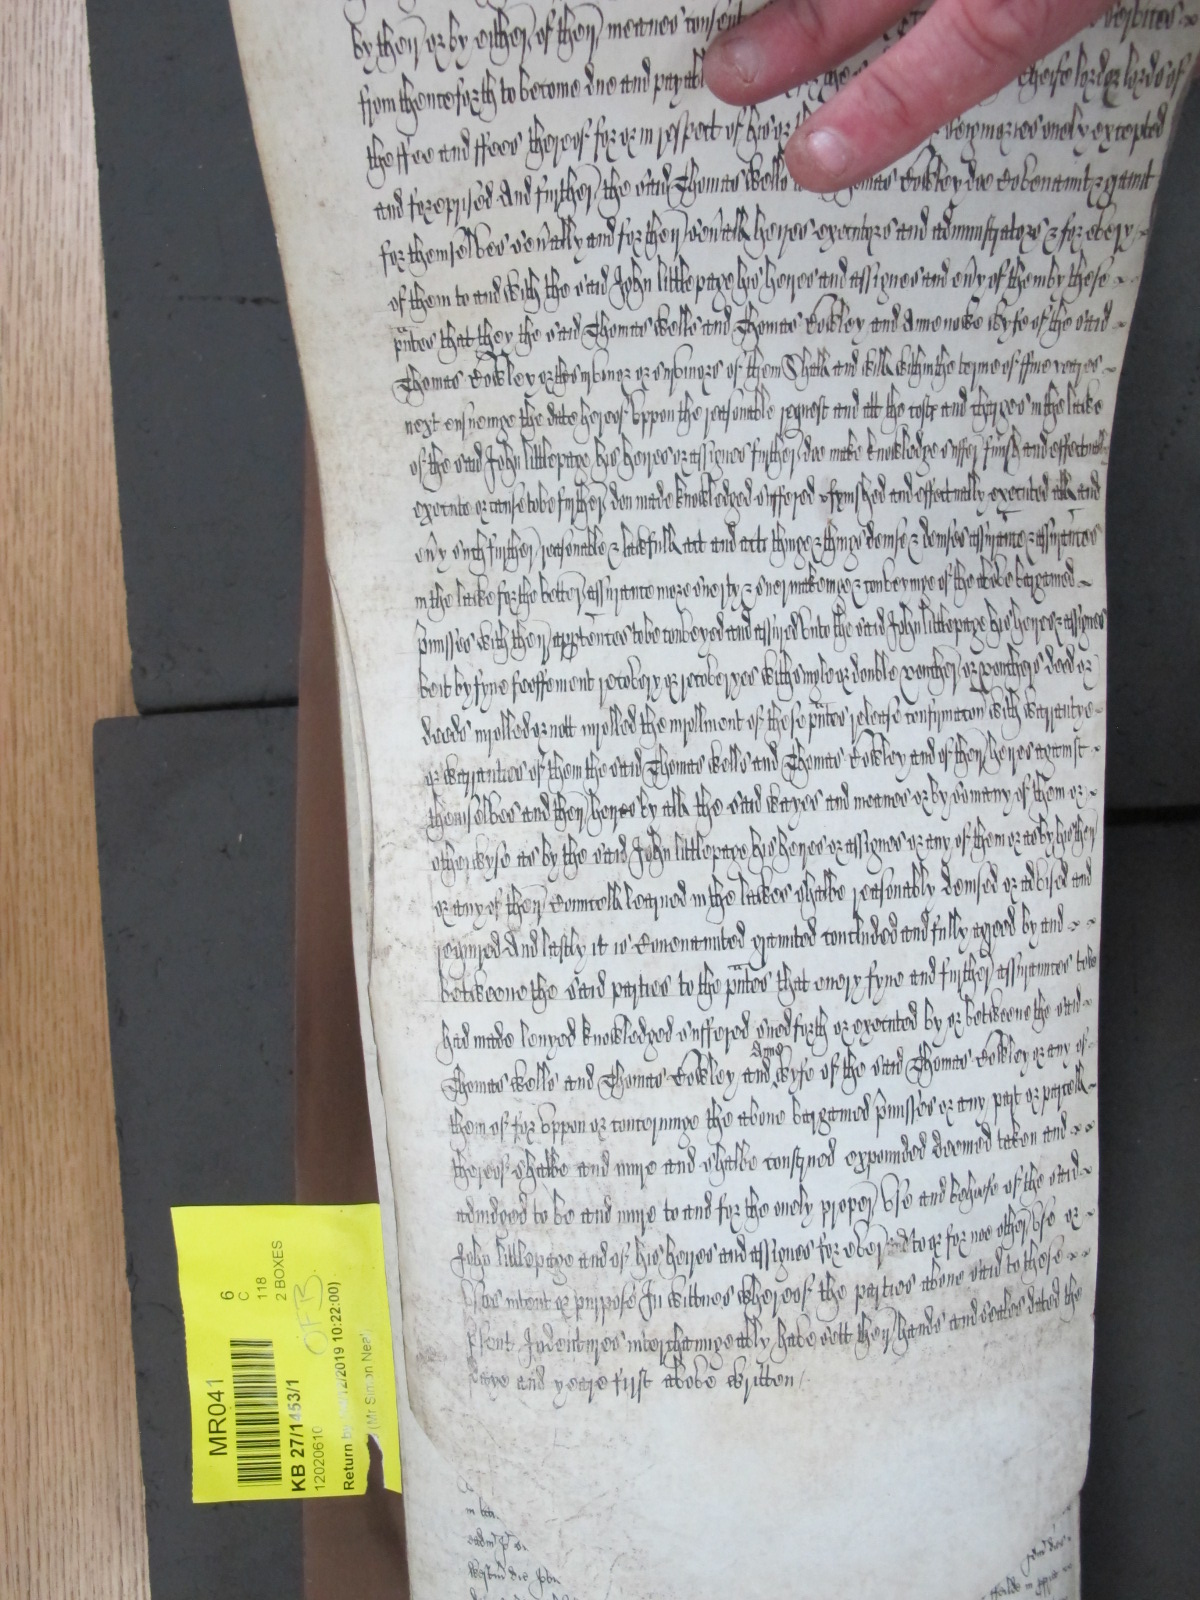 by their or by either of their meanes consent
from henceforth to become due and payable cheife lord or lords of
the ffee and ffees thereof for or in respect of his or seigniories onely excepted
and foreprised And further the said Thomas Wells Thomas Cowley doe Covenant & graunt
for themselves sevally and for their sevall heires executors and administrators & for every
of them to and with the said John littlepage his heires and assignes and evy of them by these
pntes that they the said Thomas Wells and Thomas Cowley and wyfe of the said
Thomas Cowley or the survivor or survivors of them Shall and will within the terme of ffive yeares
next ensueinge the date hereof Uppon the reasonable request and att the costes and charges in the lawe
of the said John littlepage his heires or assignes further doe make knowledge suffer finish and effectually
execute or cause to be further don made knowledged suffered & fynished and effectually executed all and
evy such further reasonable & lawfull act and acts thinge & thinges devise & devises assurance & assurances
in the lawe for the better assurance more suerty & suer makeinge & conveyinge of the above bargained
pmisses with their apptences to be conveyed and assured unto the said John littlepage his heires & assignes
be it by fyne feoffement recovery or recoveryes with single or double voucher or vouchers deed or
deeds inrolled or nott inrolled the inrollment of these pntes release confirmacon with warrantye
or warranties of them the said Thomas Wells and Thomas Cowley and of their heires against
themselves and their heires by all the said wayes and meanes or by so many of them or
otherwyse as by the said John littlepage his heires or assignes or any of them or as by his their
or any of their Councell learned in the lawes shalbe reasonably devised or advised and
required And lastly it is Convenanted graunted concluded and fully agreed by and
betweene the said parties to the pntes that every fyne and further assurances to be
had made levyed knowledged suffered sued forth or executed by or betweene the said
Thomas Wells and Thomas Cowley and wyfe of the said Thomas Cowley or any of
them of for uppon or concerninge the above bargained pmisses or any part or parcell
thereof shalbe and inure and shalbe construed expounded deemed taken and
adiudged to be and inure to and for the onely proper Use and behoofe of the said
John littlepage and of his heires and assignes for ever and to or for noe other Use or
Uses intent or purpose In wittnes whereof the parties above said to these
psent Indentures interchaungeably have sett their hands and seales dated the
daye and yeare first above written
MR041
6
C
118
2 BOXES
KB 27/1453/1
12020610
OFB
Return by /12/2019 10:22:00)
(Mr Simon Neal